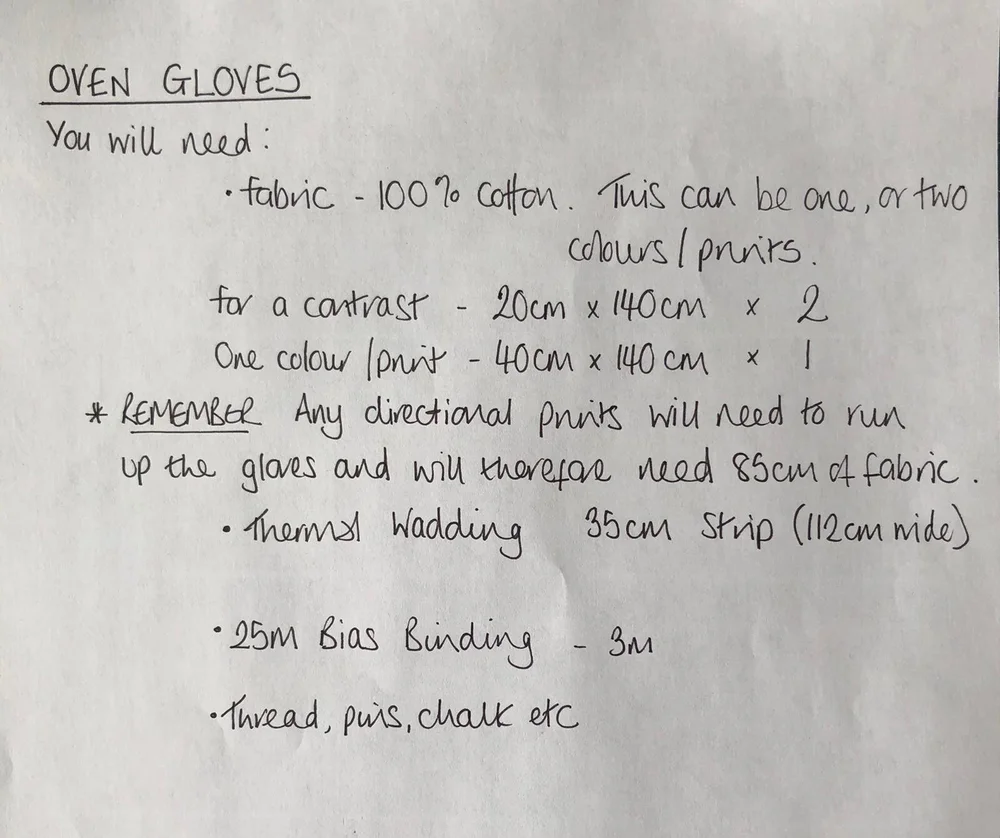 OVEN GLOVES
You will need:
• fabric - 100% Cotton. This can be one, or two
colours/prints.
for a contrast - 20cm x 140cm x 2
One colour/print - 40cm x 140cm x 1
* REMEMBER Any directional prints will need to run
up the gloves and will therefore need 85cm of fabric.
• Thermal Wadding 35cm Strip (112cm wide)
• 25M Bias Binding - 3M
• Thread, pins, chalk etc